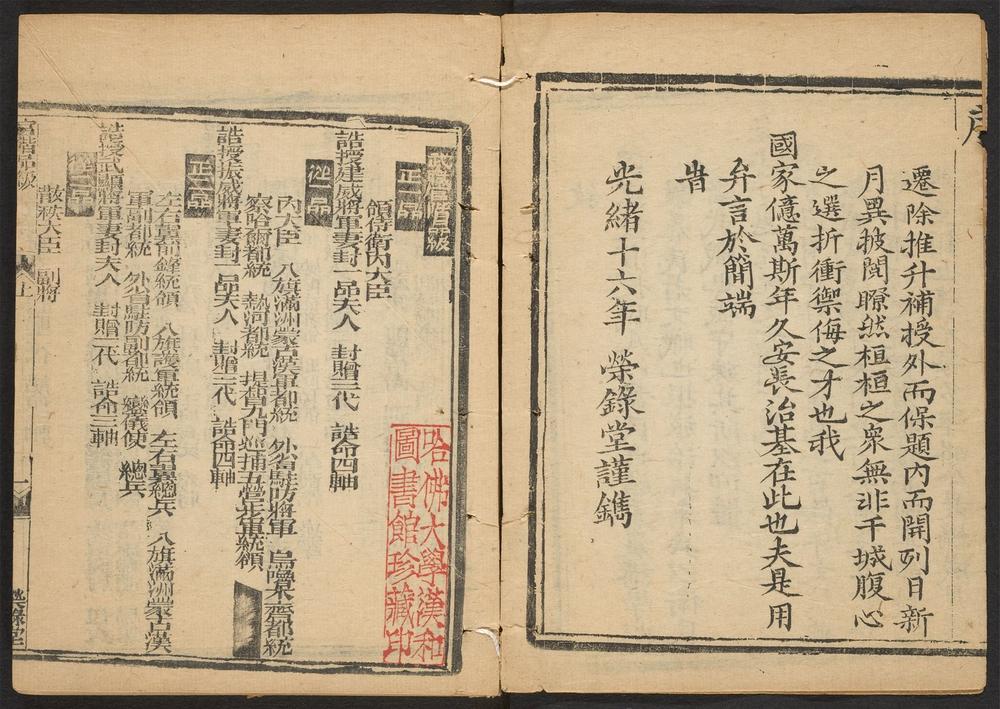 遷除推升補授外而保題內而開列日新
月異披閱瞭然桓桓之衆無非干城腹心
之選折衝禦侮之才也我
國家億萬斯年久安長治基在此也夫是用
弁言於簡端
旹
光緒十六年 榮錄堂謹鐫
武職官階品級
正一品
領侍衛內大臣
誥授建威將軍妻封一品夫人 封贈三代 誥命四軸
從一品
內大臣 八旗滿洲蒙古漢軍都統 外省駐防將軍 烏嚕木齊都統
察哈爾都統 熱河都統 提督九門巡捕五營步軍統領
誥授振威將軍妻封一品夫人 封贈三代 誥命四軸
正二品
左右翼前鋒統領 八旗護軍統領 左右翼總兵 八旗滿洲蒙古漢
軍副都統 外省駐防副都統 鑾儀使 總兵
誥授武顯將軍妻封夫人 封贈二代 誥命三軸
從二品
散秩大臣 副將
官階品級
上
一
榮錄堂
哈佛大學漢和
圖書館珍藏印